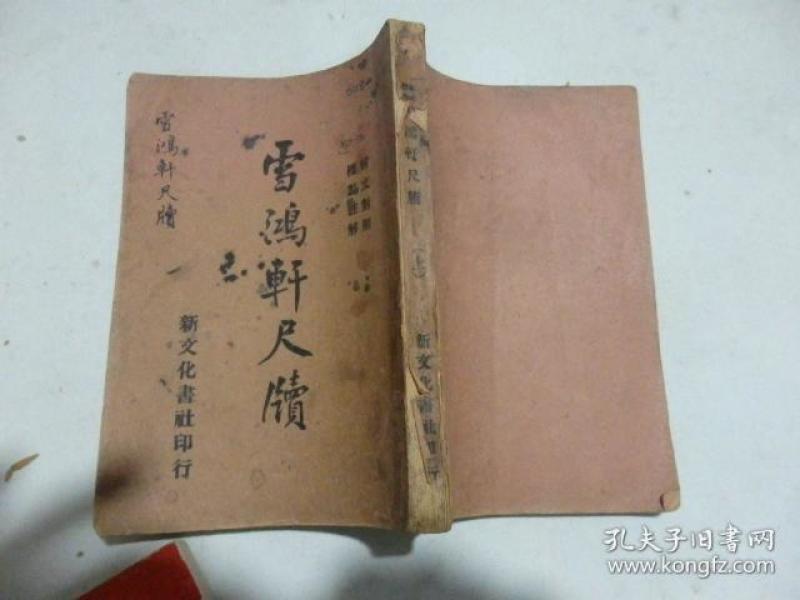 雪鴻軒尺牘
標點註解
雪鴻軒尺牘
新文化書社印行
鴻軒尺牘
新文化書社印行
孔夫子旧书网
www.kongfz.com